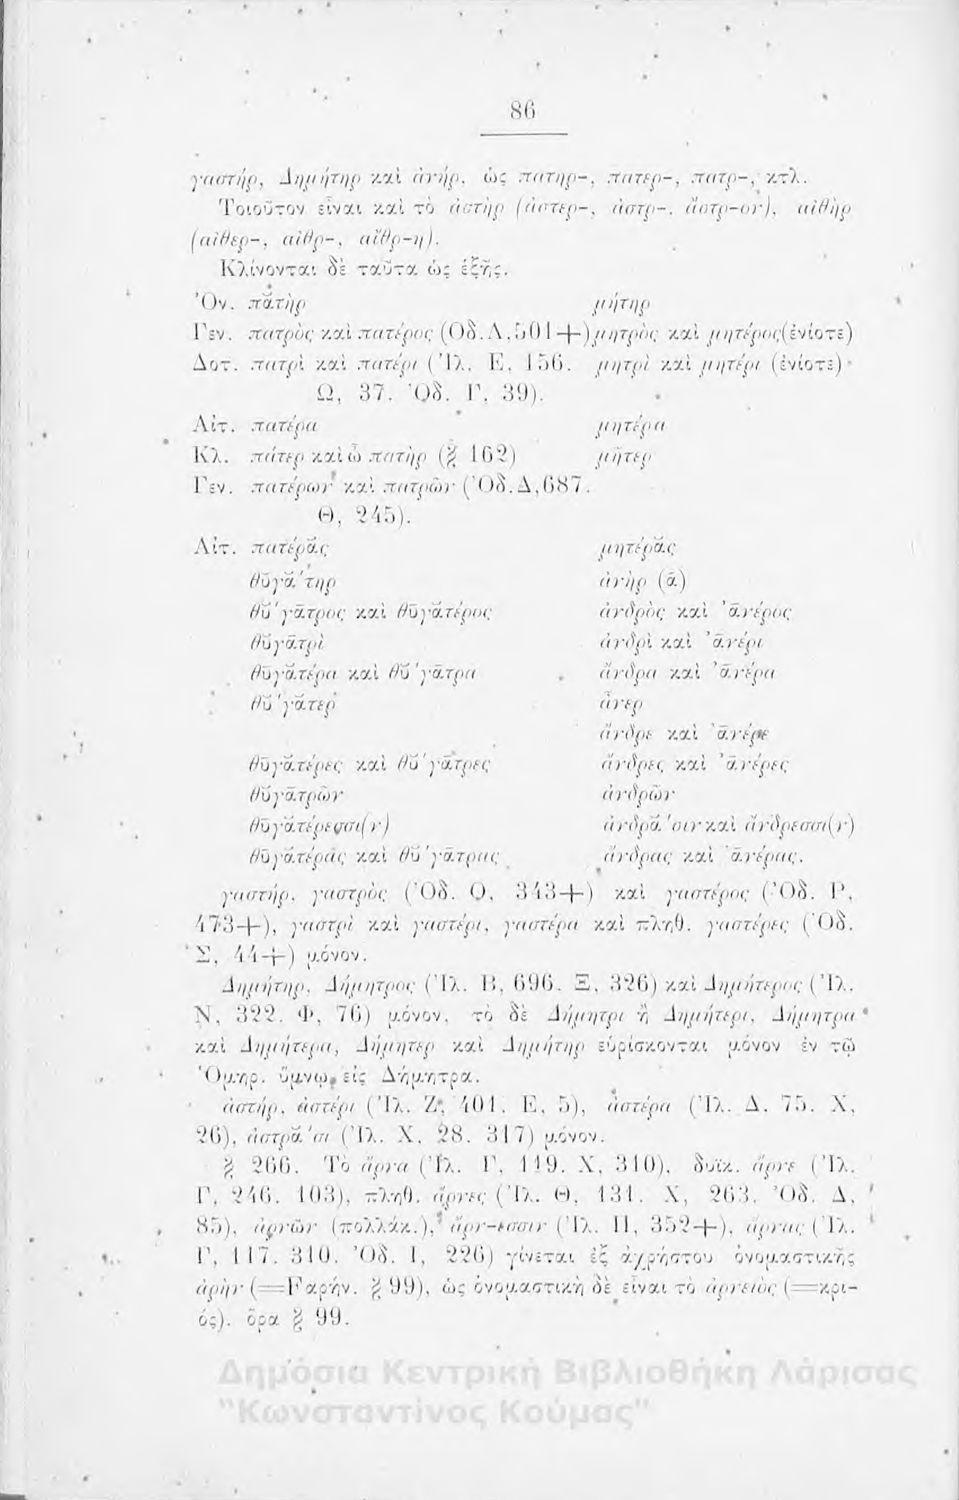 86
γαστήρ, Δημήτηρ καὶ ἀνήρ, ὡς πατηρ-, πατερ-, πατρ-, κτλ.
Τοιοῦτον εἶναι καὶ τὸ ἀστὴρ (ἀστερ-, ἀστρ-, ἄστρ-ον), αἰθὴρ
(αἰθερ-, αἰθρ-, αἴθρ-η).
Κλίνονται δὲ ταῦτα ὡς ἑξῆς.
Ὀν. πᾰτὴρ μήτηρ
Γεν. πατρὸς καὶ πατέρος (Ὀδ. Λ, 501+) μητρὸς καὶ μητέρος (ἐνίοτε)
Δοτ. πατρὶ καὶ πατέρι (Ἰλ. Ε, 156. μητρὶ καὶ μητέρι (ἐνίοτε)
Ω, 37. Ὀδ. Γ, 39).
Αἰτ. πατέρα μητέρα
Κλ. πάτερ καὶ ὦ πατὴρ (§ 162) μῆτερ
Γεν. πατέρων καὶ πατρῶν (Ὀδ. Δ, 687.
Θ, 245).
Αἰτ. πατέρᾰς μητέρᾰς
θῠγᾰ́τηρ ἀνὴρ (ᾰ)
θῡ́γᾰτρος καὶ θῡγᾰτέρος ἀνδρὸς καὶ ᾱ̓νέρος
θῠγᾰτρὶ ἀνδρὶ καὶ ᾱ̓νέρι
θῡγᾰτέρα καὶ θῡ́γᾰτρα ἄνδρα καὶ ᾱ̓νέρα
θῠ́γᾰτερ ἄνερ
ἄνδρε καὶ ᾱ̓νέρε
θῡγᾰτέρες καὶ θῡ́γᾰτρες ἄνδρες καὶ ᾱ̓νέρες
θῠγᾰτρῶν ἀνδρῶν
θῡγᾰτέρεσσι(ν) ἀνδρᾰ́σιν καὶ ἄνδρεσσι(ν)
θῡγᾰτέρᾰς καὶ θῡ́γᾰτρας ἄνδρας καὶ ᾱ̓νέρας.
γαστήρ, γαστρὸς (Ὀδ. Ο, 343+) καὶ γαστέρος (Ὀδ. Ρ,
473+), γαστρὶ καὶ γαστέρι, γαστέρα καὶ πληθ. γαστέρες (Ὀδ.
Σ, 44+) μόνον.
Δημήτηρ, Δήμητρος (Ἰλ. Β, 696. Ξ, 326) καὶ Δημήτερος (Ἰλ.
Ν, 322. Φ, 76) μόνον, τὸ δὲ Δήμητρι ἢ Δημήτερι, Δήμητρα
καὶ Δημήτερα, Δήμητερ καὶ Δημήτηρ εὑρίσκονται μόνον ἐν τῷ
Ὁμηρ. ὕμνῳ εἰς Δήμητρα.
ἀστήρ, ἀστέρι (Ἰλ. Ζ, 401. Ε, 5), ἀστέρα (Ἰλ. Δ, 75. Χ,
26), ἀστρᾰ́σι (Ἰλ. Χ, 28. 317) μόνον.
§ 266. Τὸ ἄρνα (Ἰλ. Γ, 119. Χ, 310), δυϊκ. ἄρνε (Ἰλ.
Γ, 246. 103), πληθ. ἄρνες (Ἰλ. Θ, 131. Χ, 263. Ὀδ. Δ,
85), ἀρνῶν (πολλάκ.), ἄρν-εσσιν (Ἰλ. Π, 352+), ἄρνας (Ἰλ.
Γ, 117. 310. Ὀδ. Ι, 226) γίνεται ἐξ ἀχρήστου ὀνομαστικῆς
ἀρὴν (=Ϝαρήν. § 99), ὡς ὀνομαστικὴ δὲ εἶναι τὸ ἀρνειὸς (=κρι-
ός). ὅρα § 99.
Δημόσια Κεντρική Βιβλιοθήκη Λάρισας
"Κωνσταντίνος Κούμας"